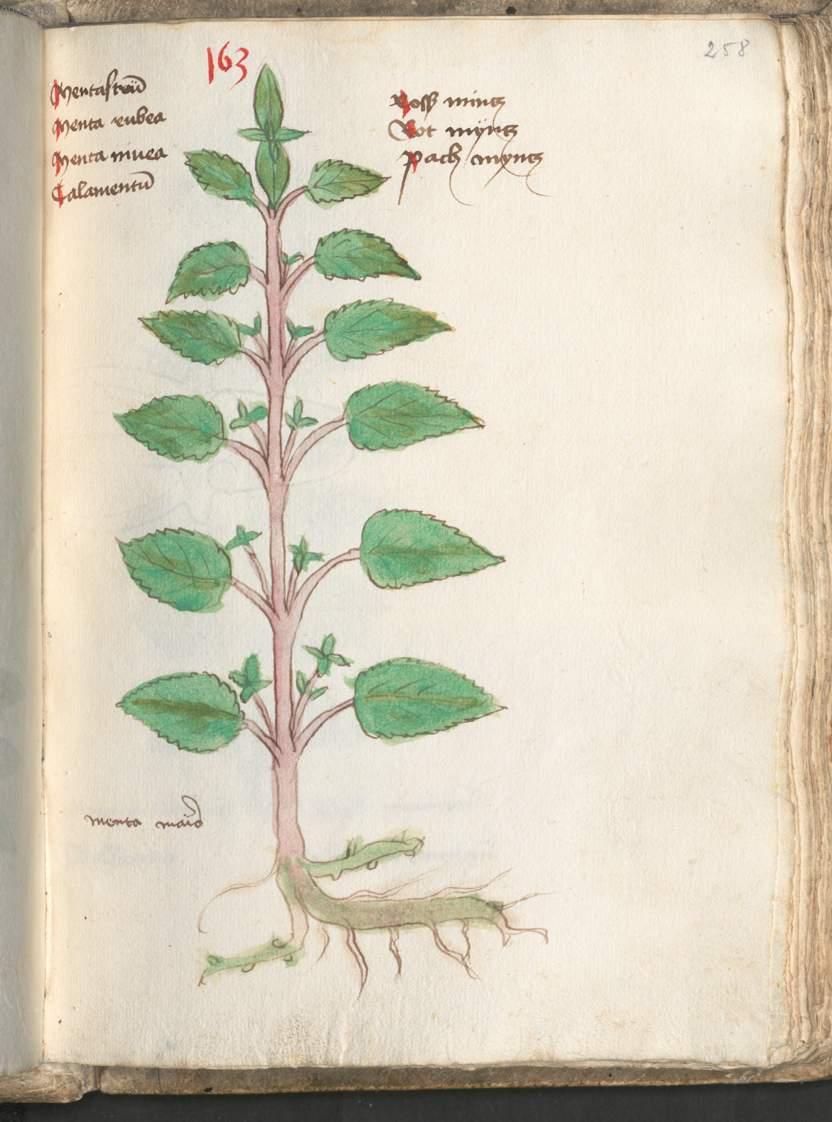 163
258
Mentastrū
Menta rubea
Menta nivea
Calamentū
Ross mintz
Rot myntz
Pach myntz
menta maior